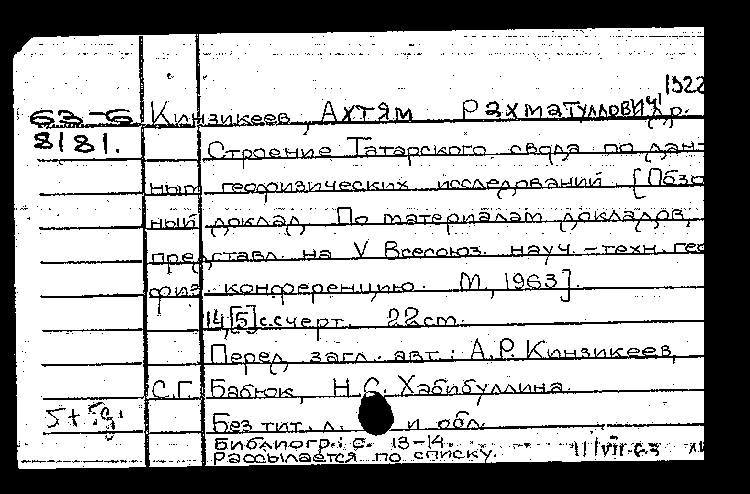 1922
63-6 Кинзикеев, Ахтям Рахматуллович и др.
8181. Строение Татарского свода по дан-
ным геофизических исследований. [Обзо
ный доклад. По материалам докладов,
представл. на V Всесоюз. науч.-техн. гео
физ. конференцию. М., 1963].
14, [5] с. с черт. 22 см.
Перед загл. авт.: А.Р. Кинзикеев,
С.Г. Бабюк, Н.С. Хабибуллина.
Без тит. л. и обл.
Библиогр.: с. 13-14.
Рассылается по списку. 11/VII-63